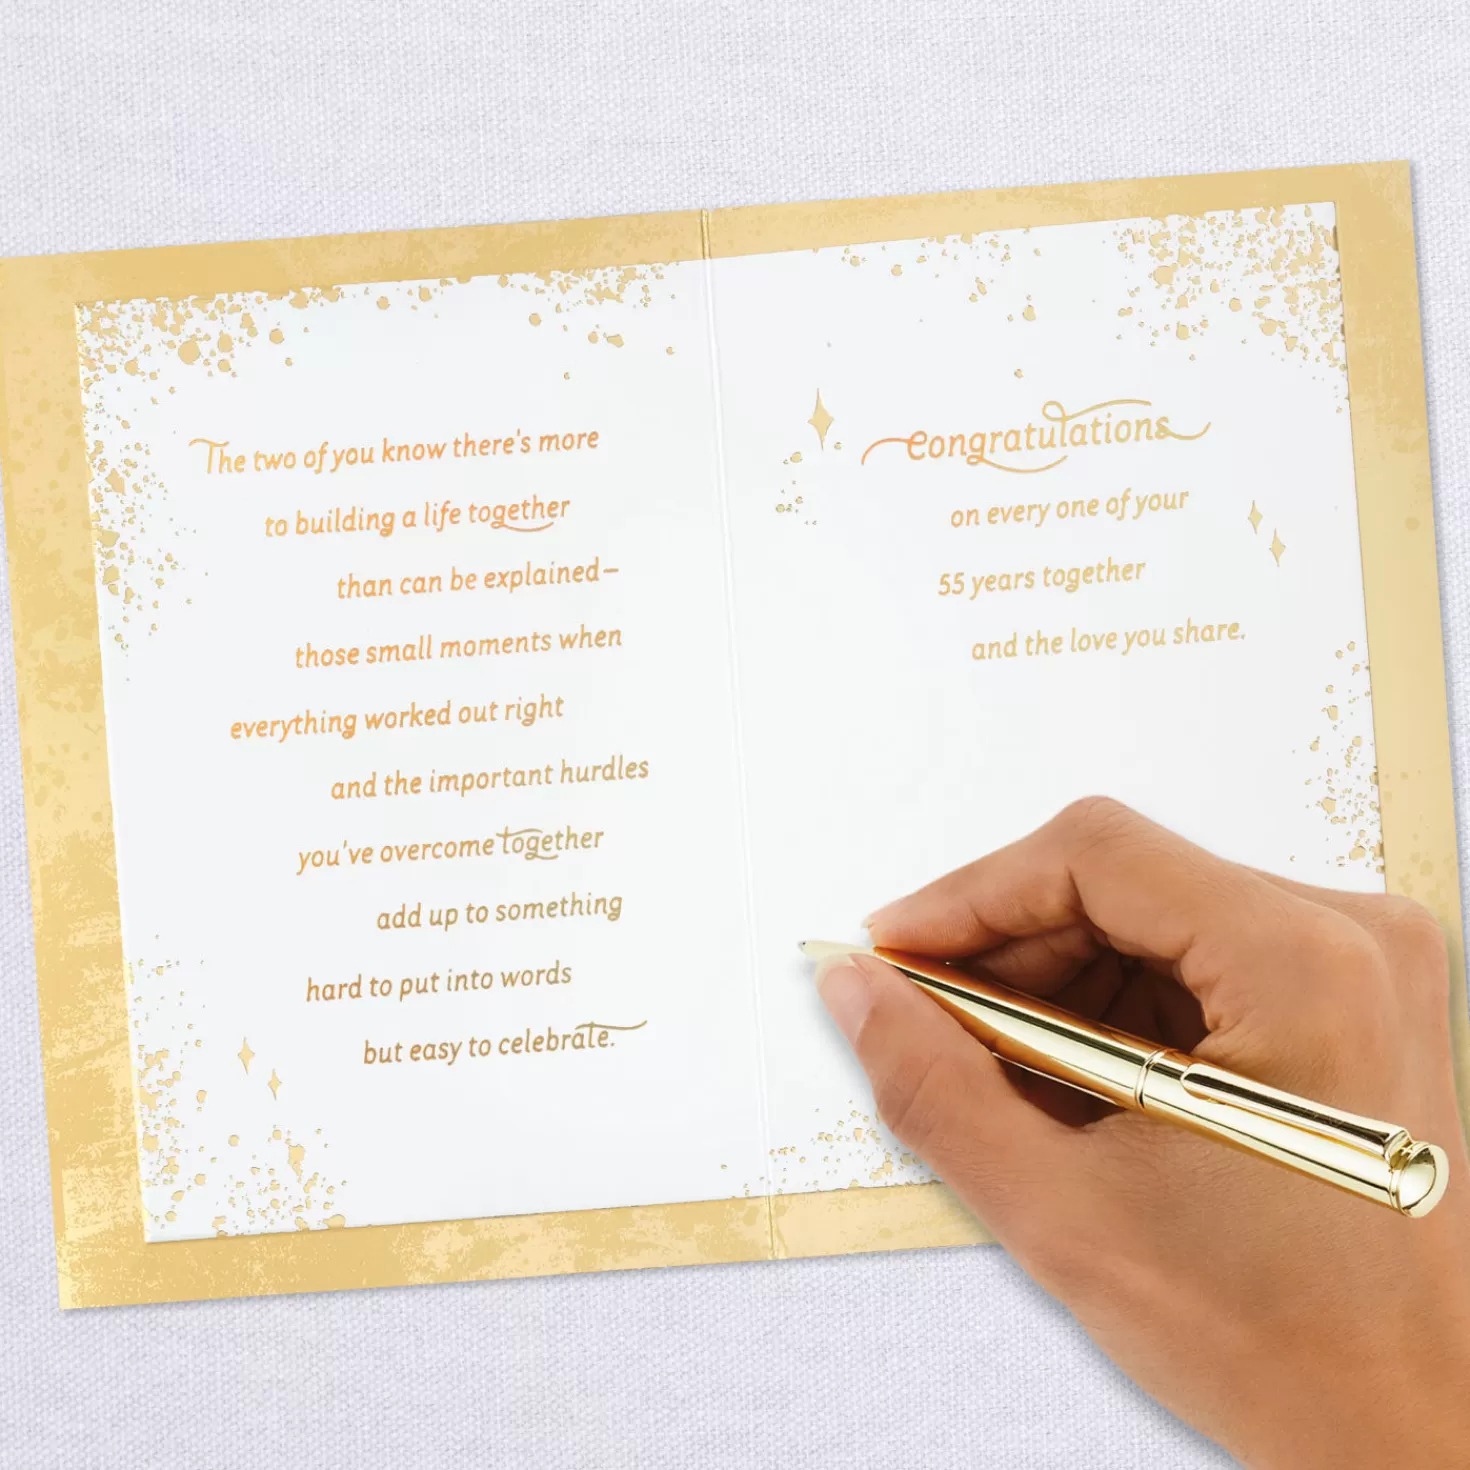 The two of you know there's more
to building a life together
than can be explained—
those small moments when
everything worked out right
and the important hurdles
you've overcome together
add up to something
hard to put into words
but easy to celebrate.
Congratulations
on every one of your
55 years together
and the love you share.